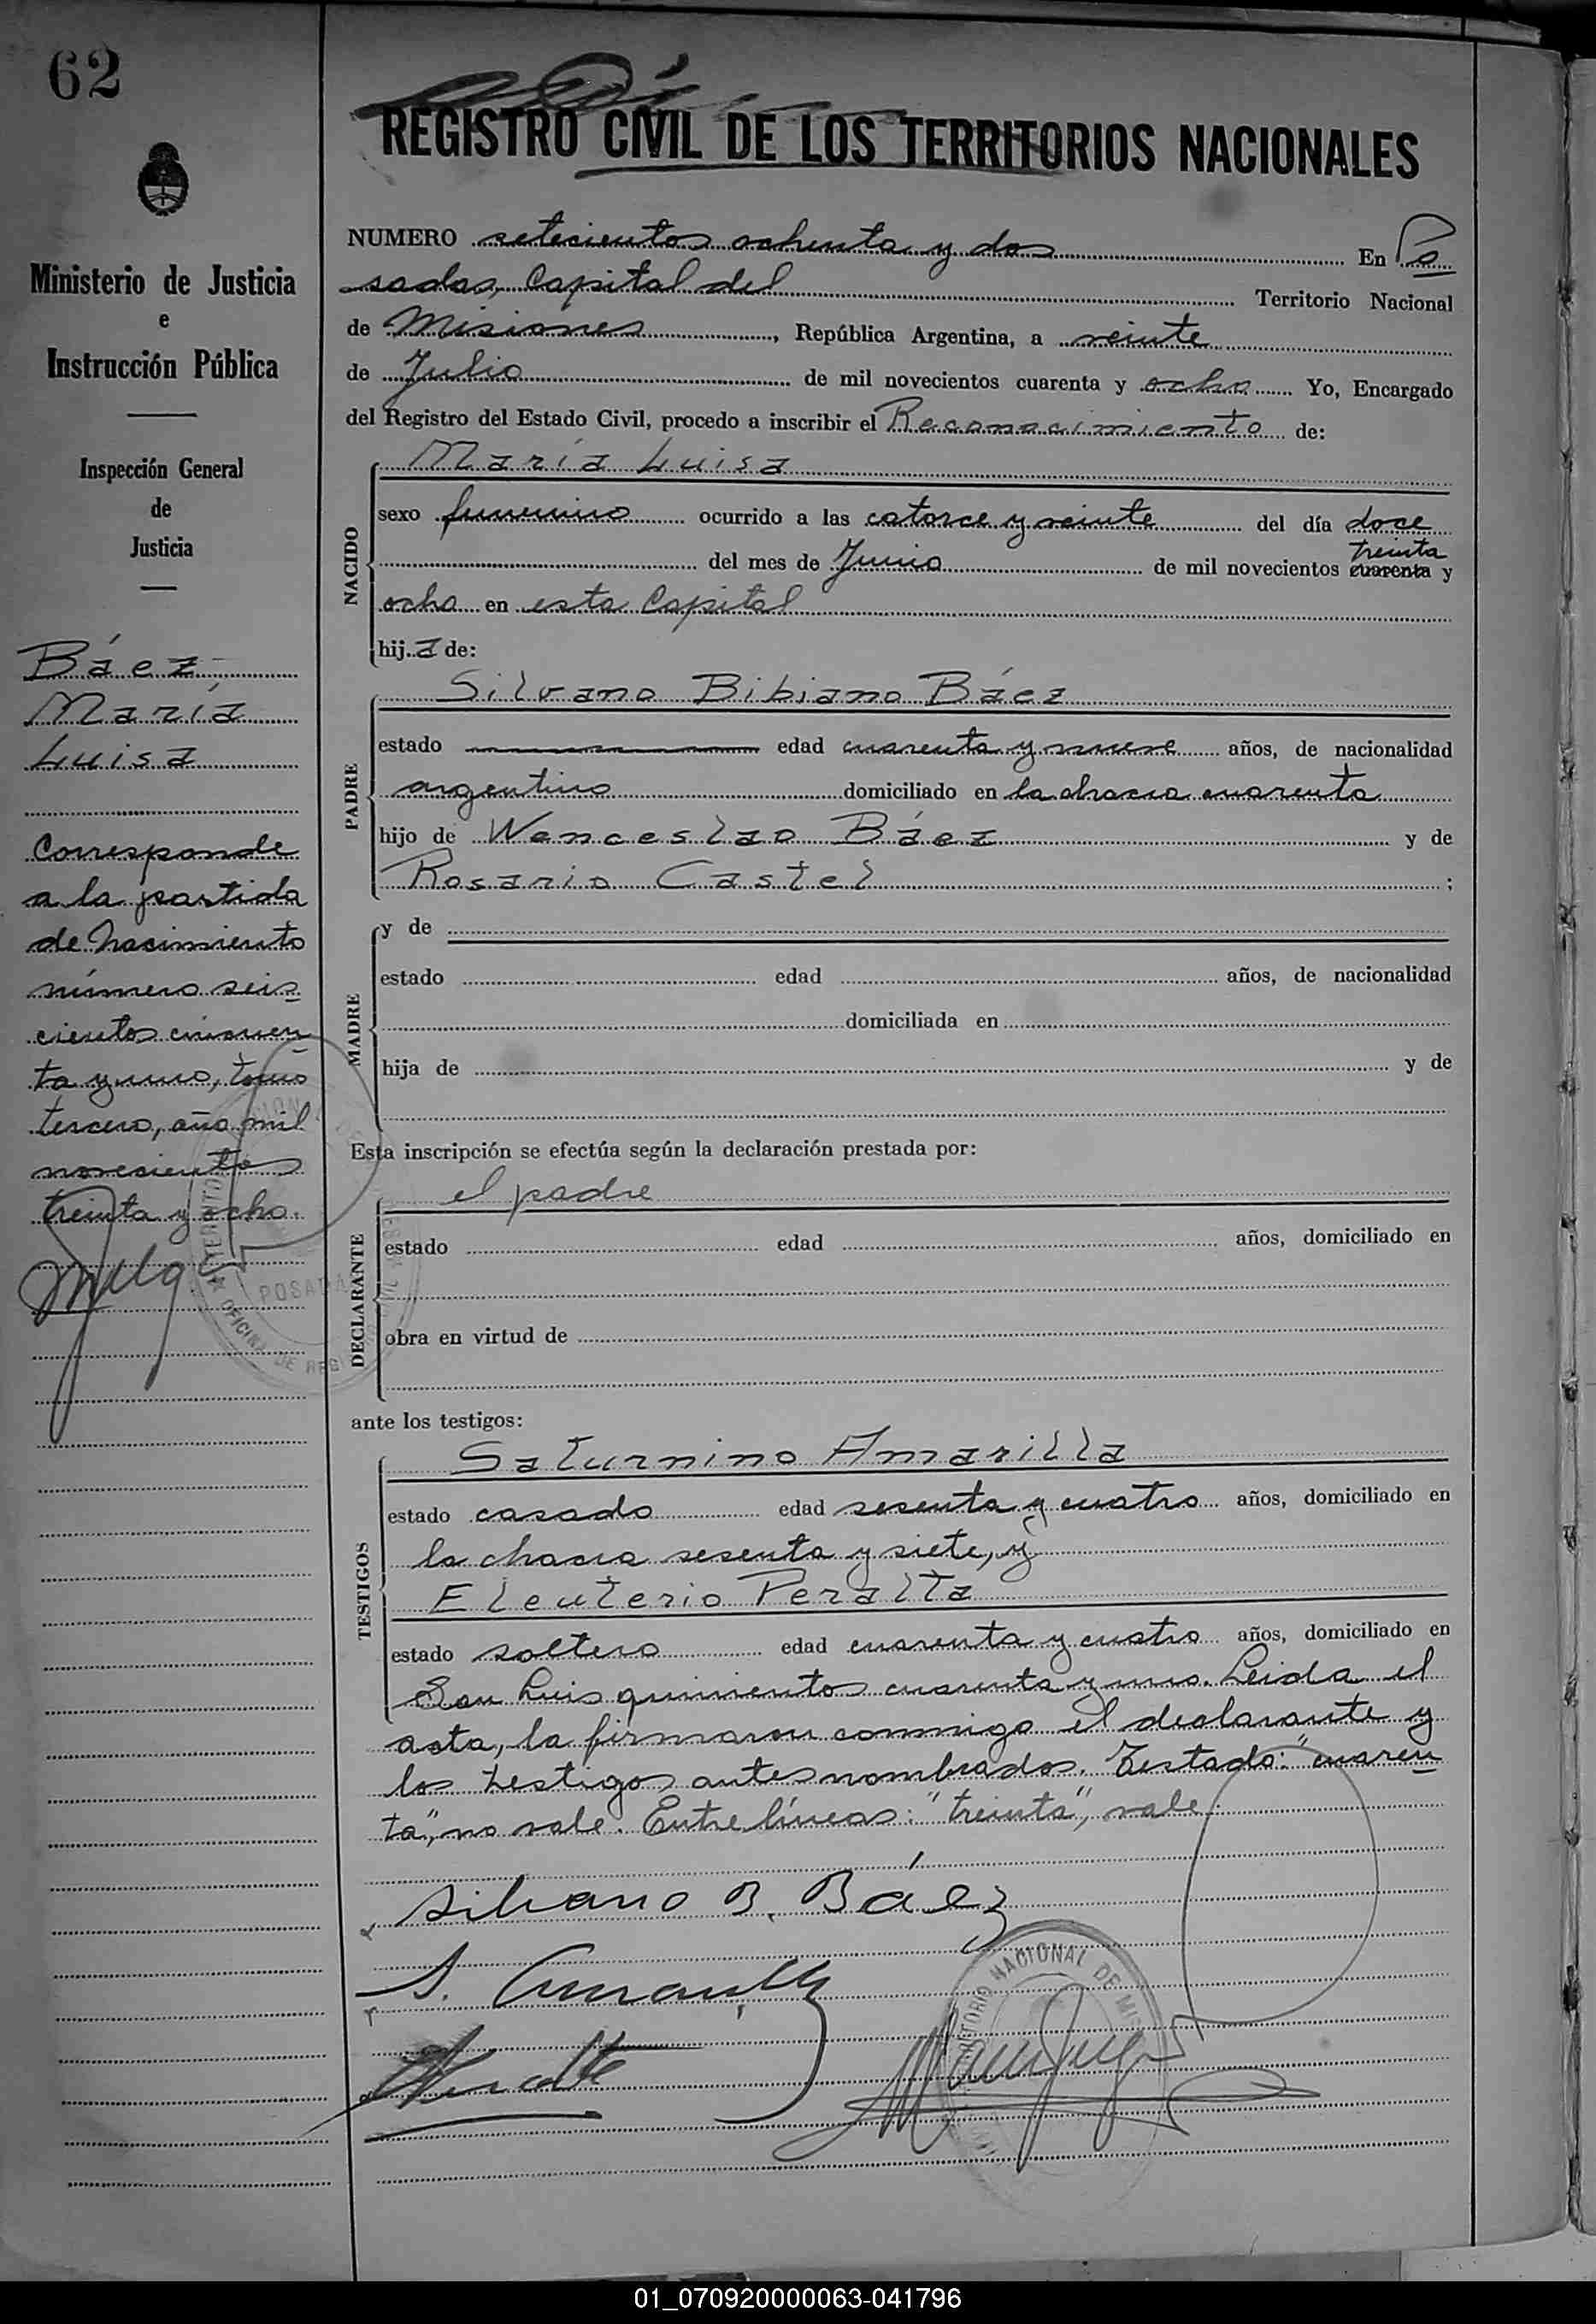 62
Ministerio de Justicia
e
Instrucción Pública
Inspección General
de
Justicia
Báez
María
Luisa
Corresponde
a la partida
de nacimiento
número seis
cientos cincuen
ta y uno, tomo
tercero, año mil
novecientos
treinta y ocho.
REGISTRO CIVIL DE LOS TERRITORIOS NACIONALES
NUMERO setecientos ochenta y dos En Po
sadas, Capital del Territorio Nacional
de Misiones, República Argentina, a veinte
de Julio de mil novecientos cuarenta y ocho Yo, Encargado
del Registro del Estado Civil, procedo a inscribir el Reconocimiento de:
María Luisa
NACIDO
sexo femenino ocurrido a las catorce y veinte del día doce
treinta
del mes de Junio de mil novecientos cuarenta y
ocho en esta Capital
hij.a de:
Silvano Bibiano Báez
PADRE
estado edad cuarenta y nueve años, de nacionalidad
argentino domiciliado en la chacra cuarenta
hijo de Wenceslao Báez y de
Rosario Castel ;
MADRE
y de
estado edad años, de nacionalidad
domiciliada en
hija de y de
Esta inscripción se efectúa según la declaración prestada por:
el padre
DECLARANTE
estado edad años, domiciliado en
obra en virtud de
ante los testigos:
TESTIGOS
Saturnino Amarilla
estado casado edad sesenta y cuatro años, domiciliado en
la chacra sesenta y siete, y
Eleuterio Peralta
estado soltero edad cuarenta y cuatro años, domiciliado en
San Luis quinientos cuarenta y uno. Leida el
acta, la firmaron conmigo el declarante y
los testigos antes nombrados. Testado: "cuaren
ta", no vale. Entre líneas: "treinta", vale.
Silvano B. Báez
S. Amarilla
POSADAS
OFICINA DE REG
TERRITORIO NACIONAL DE MIS
01_070920000063-041796